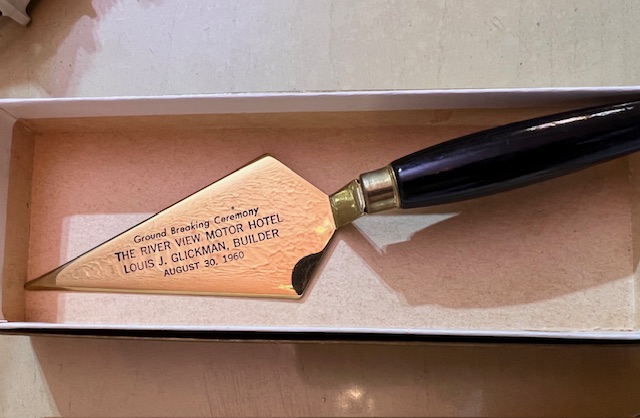 Ground Breaking Ceremony
THE RIVER VIEW MOTOR HOTEL
LOUIS J. GLICKMAN, BUILDER
AUGUST 30, 1960